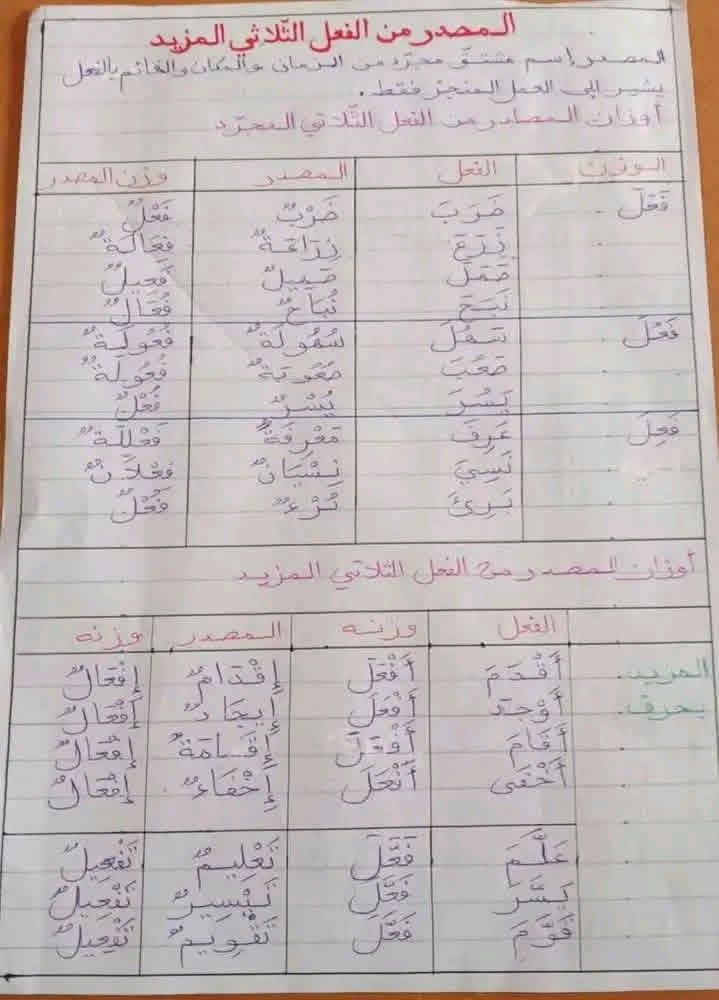 المصدر من الفعل الثلاثي المزيد
المصدر إسم مشتق مجرّد من الزمان والمكان والقائم بالفعل
يشير إلى العمل المنجز فقط.
أوزان المصادر من الفعل الثلاثي المجرّد
الوزن الفعل المصدر وزن المصدر
فَعَلَ ضَرَبَ ضَرْبٌ فَعْلٌ
زَرَعَ زِرَاعَةٌ فِعَالَةٌ
صَهَلَ صَهِيلٌ فَعِيلٌ
نَبَحَ نُبَاحٌ فُعَالٌ
فَعُلَ سَهُلَ سُهُولَةٌ فُعُولَةٌ
صَعُبَ صُعُوبَةٌ فُعُولَةٌ
يَسُرَ يُسْرٌ فُعْلٌ
فَعِلَ عَرِفَ مَعْرِفَةٌ فَعْلَلَةٌ
نَسِيَ نِسْيَانٌ فِعْلَانٌ
بَرِئَ بُرْءٌ فُعْلٌ
أوزان المصدر من الفعل الثلاثي المزيد
الفعل وزنه المصدر وزنه
المزيد أَقْدَمَ أَفْعَلَ إِقْدَامٌ إِفْعَالٌ
بحرف أَوْجَدَ أَفْعَلَ إِيجَادٌ إِفْعَالٌ
أَقَامَ أَفْعَلَ إِقَامَةٌ إِفْعَالٌ
أَخْفَى أَفْعَلَ إِخْفَاءٌ إِفْعَالٌ
عَلَّمَ فَعَّلَ تَعْلِيمٌ تَفْعِيلٌ
يَسَّرَ فَعَّلَ تَيْسِيرٌ تَفْعِيلٌ
قَوَّمَ فَعَّلَ تَقْوِيمٌ تَفْعِيلٌ